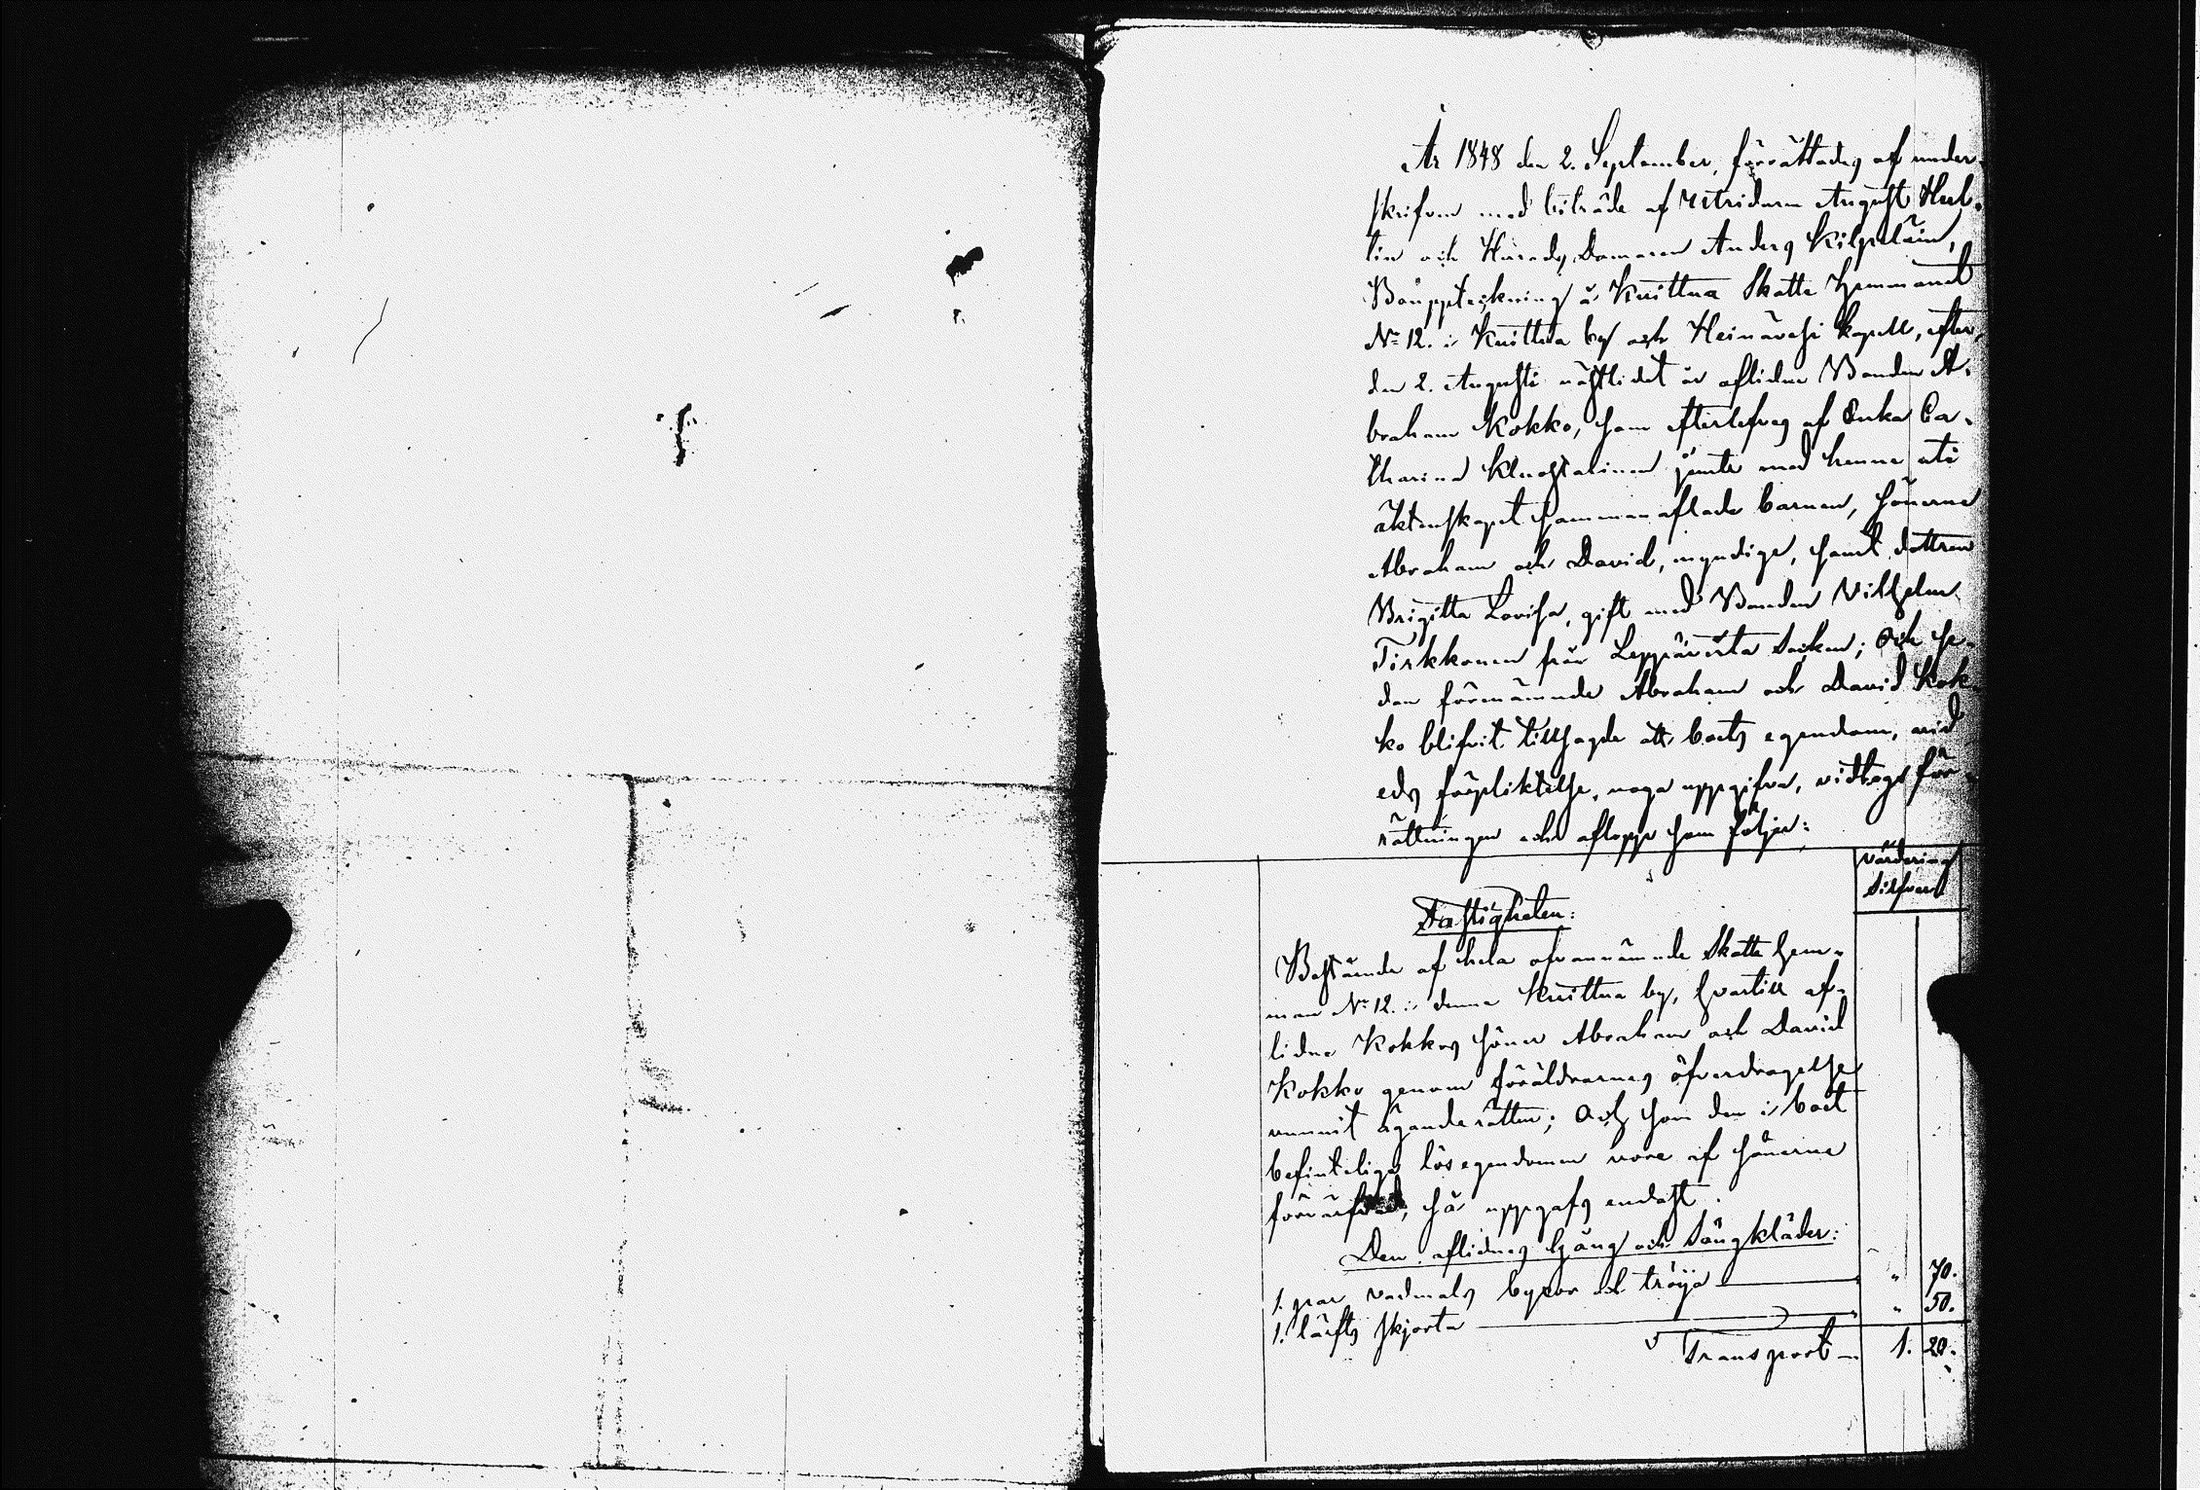 År 1848 den 2. September, förrättades af under-
skrifven med biträde af Utridaren August Hul-
tin och Härads Domaren Anders Kilpeläin,
Bouppteckning å Kuittua Skatte Hemmanet
No 12. i Kuittua by och Heinävesi kapell, efter
den 2. Augusti nästlidet år aflidne Bonden A-
braham Kokko, som efterlefves af Enka Ca-
tharina jemte med henne uti
äktenskapet sammanaflade barnen, sönerne
Abraham och David, myndige, samt dottren
Brigitta Lovisa, gift med Bonden Vilhelm
Tirkkonen från Leppävirta Socken; Och se-
dan förenämnde Abraham och David Kok-
ko blifvit tillsagde att boets egendom, vid
eds förpliktelse, noga uppgifva, vidtogs för-
rättningen och aflopp som följer:
Värdering
Silfver
Fastigheten:
Bestående af hela ofvannämnde Skatte hem-
man No 12. i denna Kuittua by, hvartill af-
lidne Kokkos söner Abraham och David
Kokko genom föräldrarnes öfverdragelse
vunnit äganderätten; Och som den i boet
befinteliga lösegendomen vore af sönerne
förvärfvad, så uppgafs endast.
Den aflidnes Gång och Sängkläder:
1. par vadmals byxor och tröja " 70.
1. lärfts skjorta " 50.
Transport 1. 20.